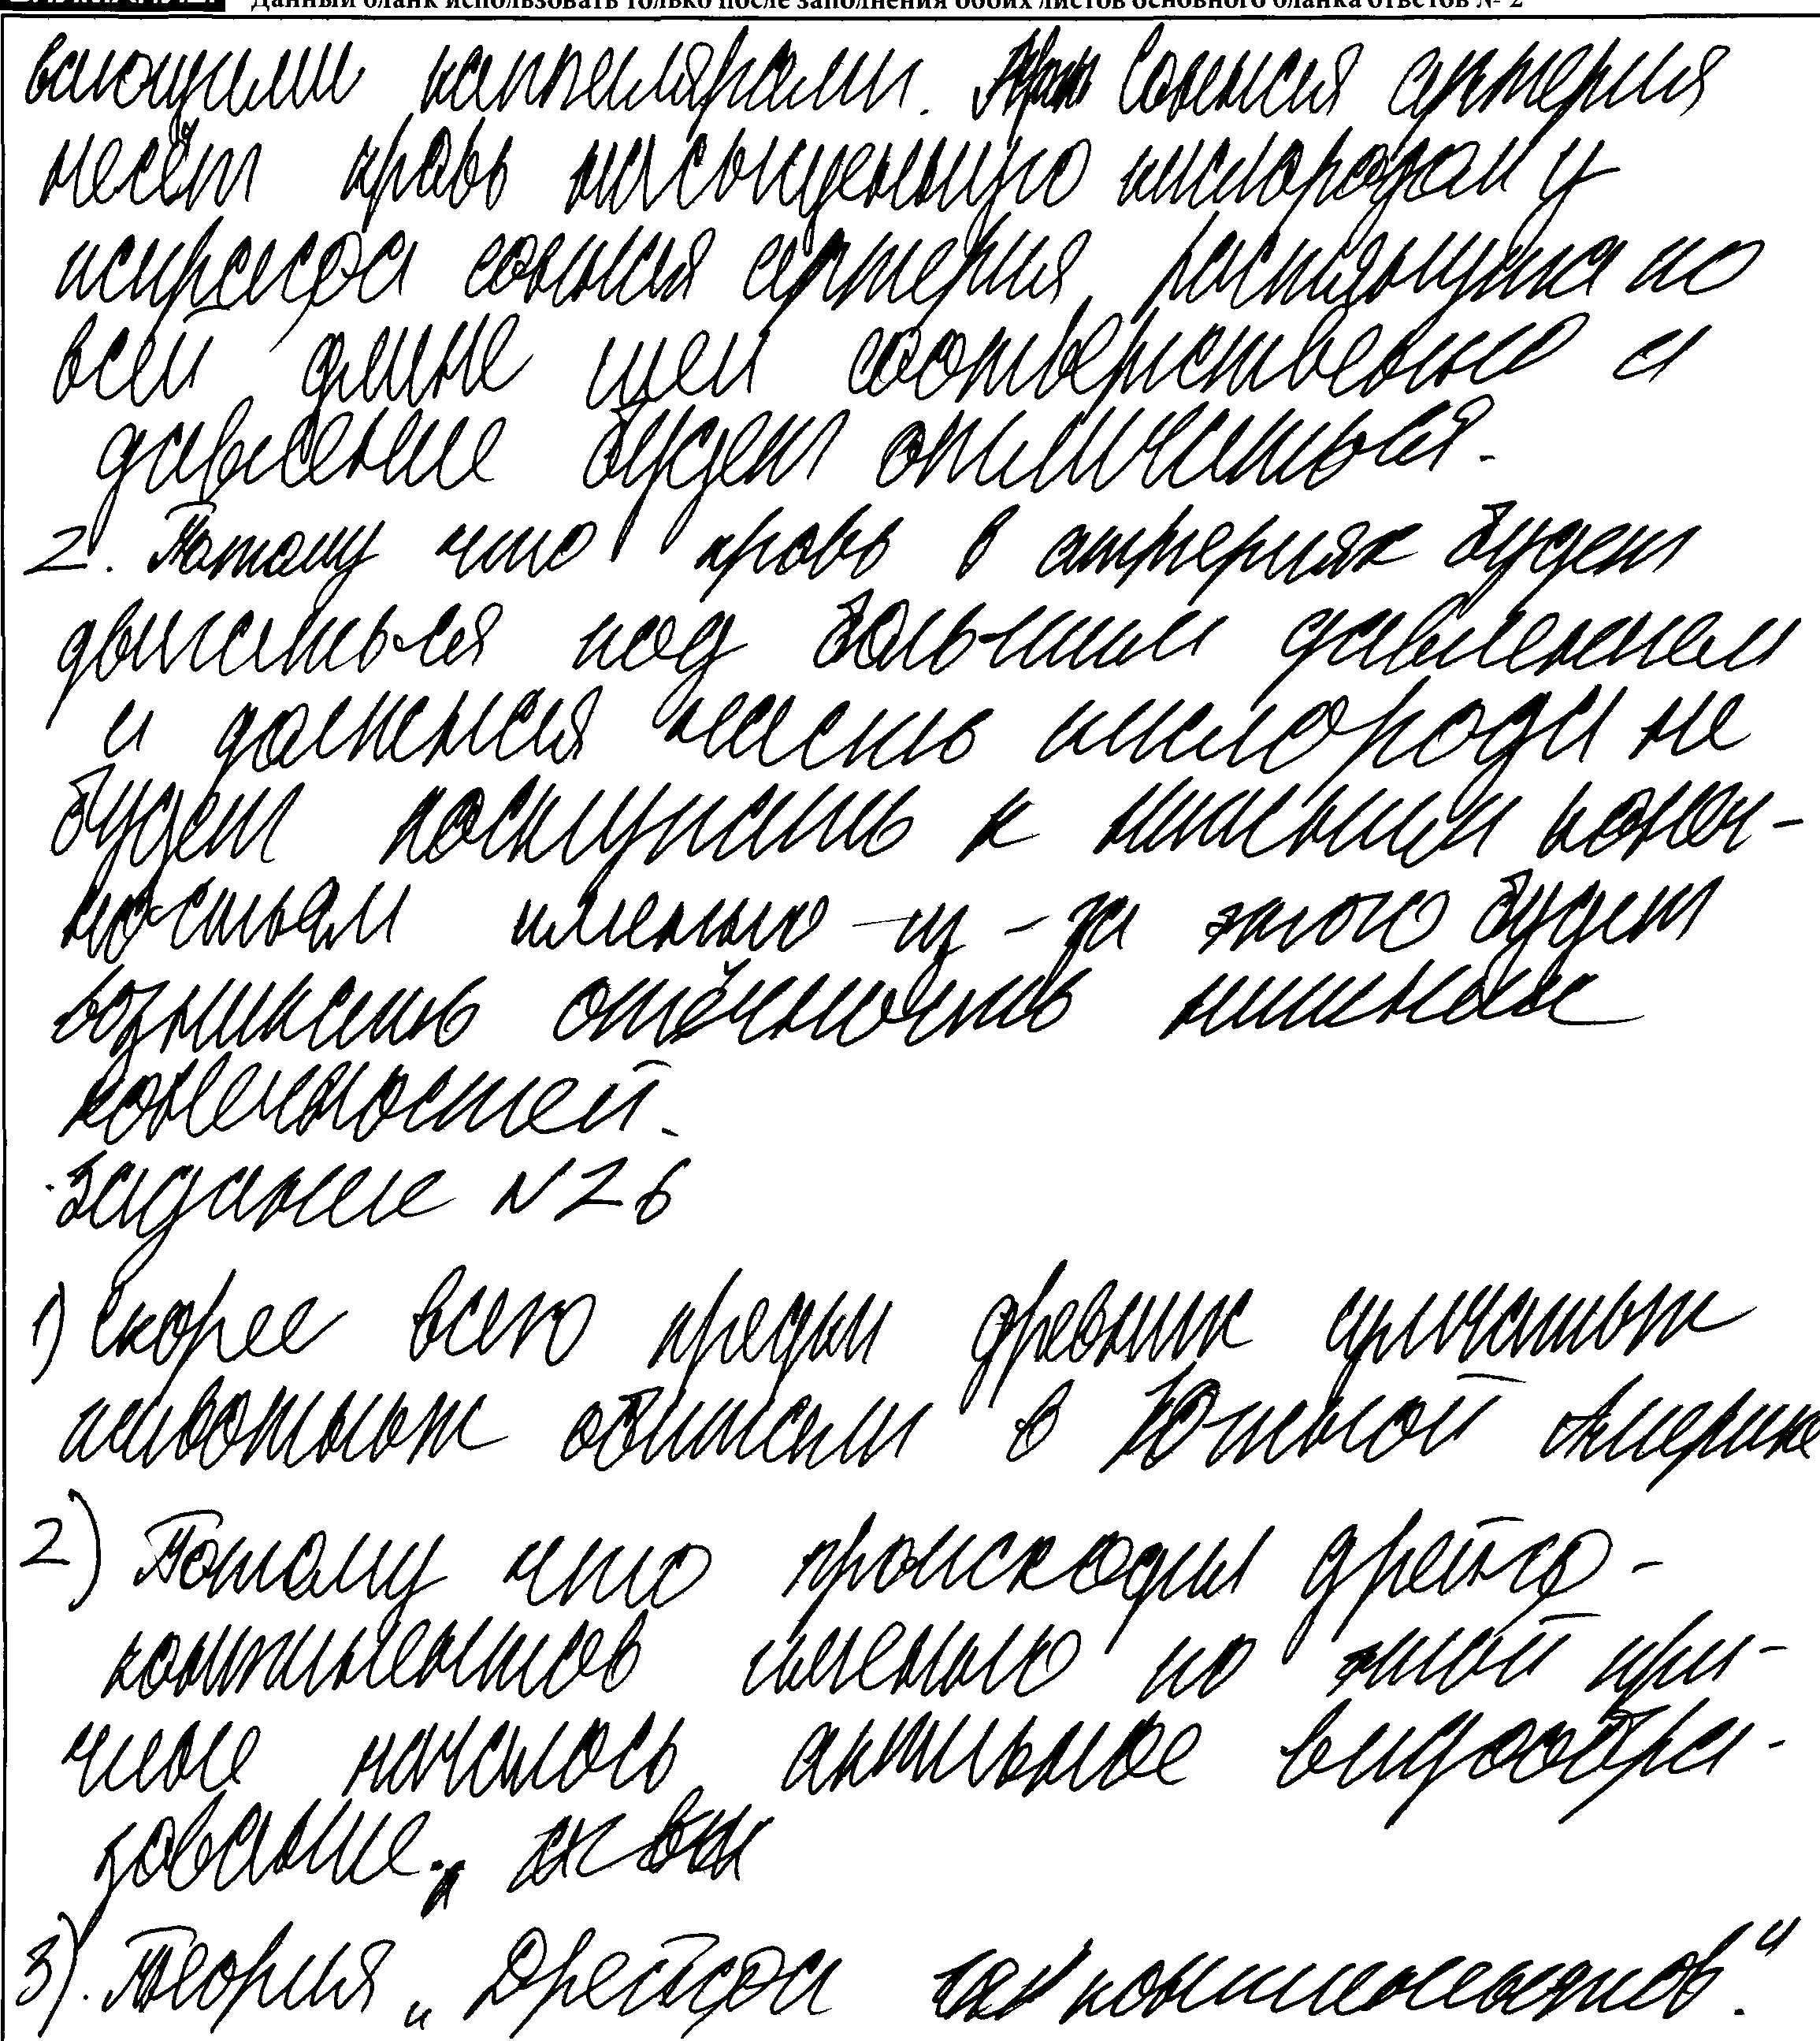 Данный бланк использовать только после заполнения обоих листов основного бланка ответов № 2
вающими каппилярами. Сонная артерия
несёт кровь насыщенную кислородом у
жирафа сонная артерия растянута по
всей длине шеи соответственно и
давление будет отличаться.
2. Потому что кровь в артериях будет
двигаться под большим давлением
и должная часть кислорода не
будет поступать к нижним конеч-
ностям именно из-за этого будет
возникать отёчность нижних
конечностей.
Задание №26
1) Скорее всего предки древних
животных обитали в Южной Америке
2) Потому что происходил дрейф
континентов именно по этой при-
чине началось активное видообра-
зование.
3). Теория "Дрейфа континентов".